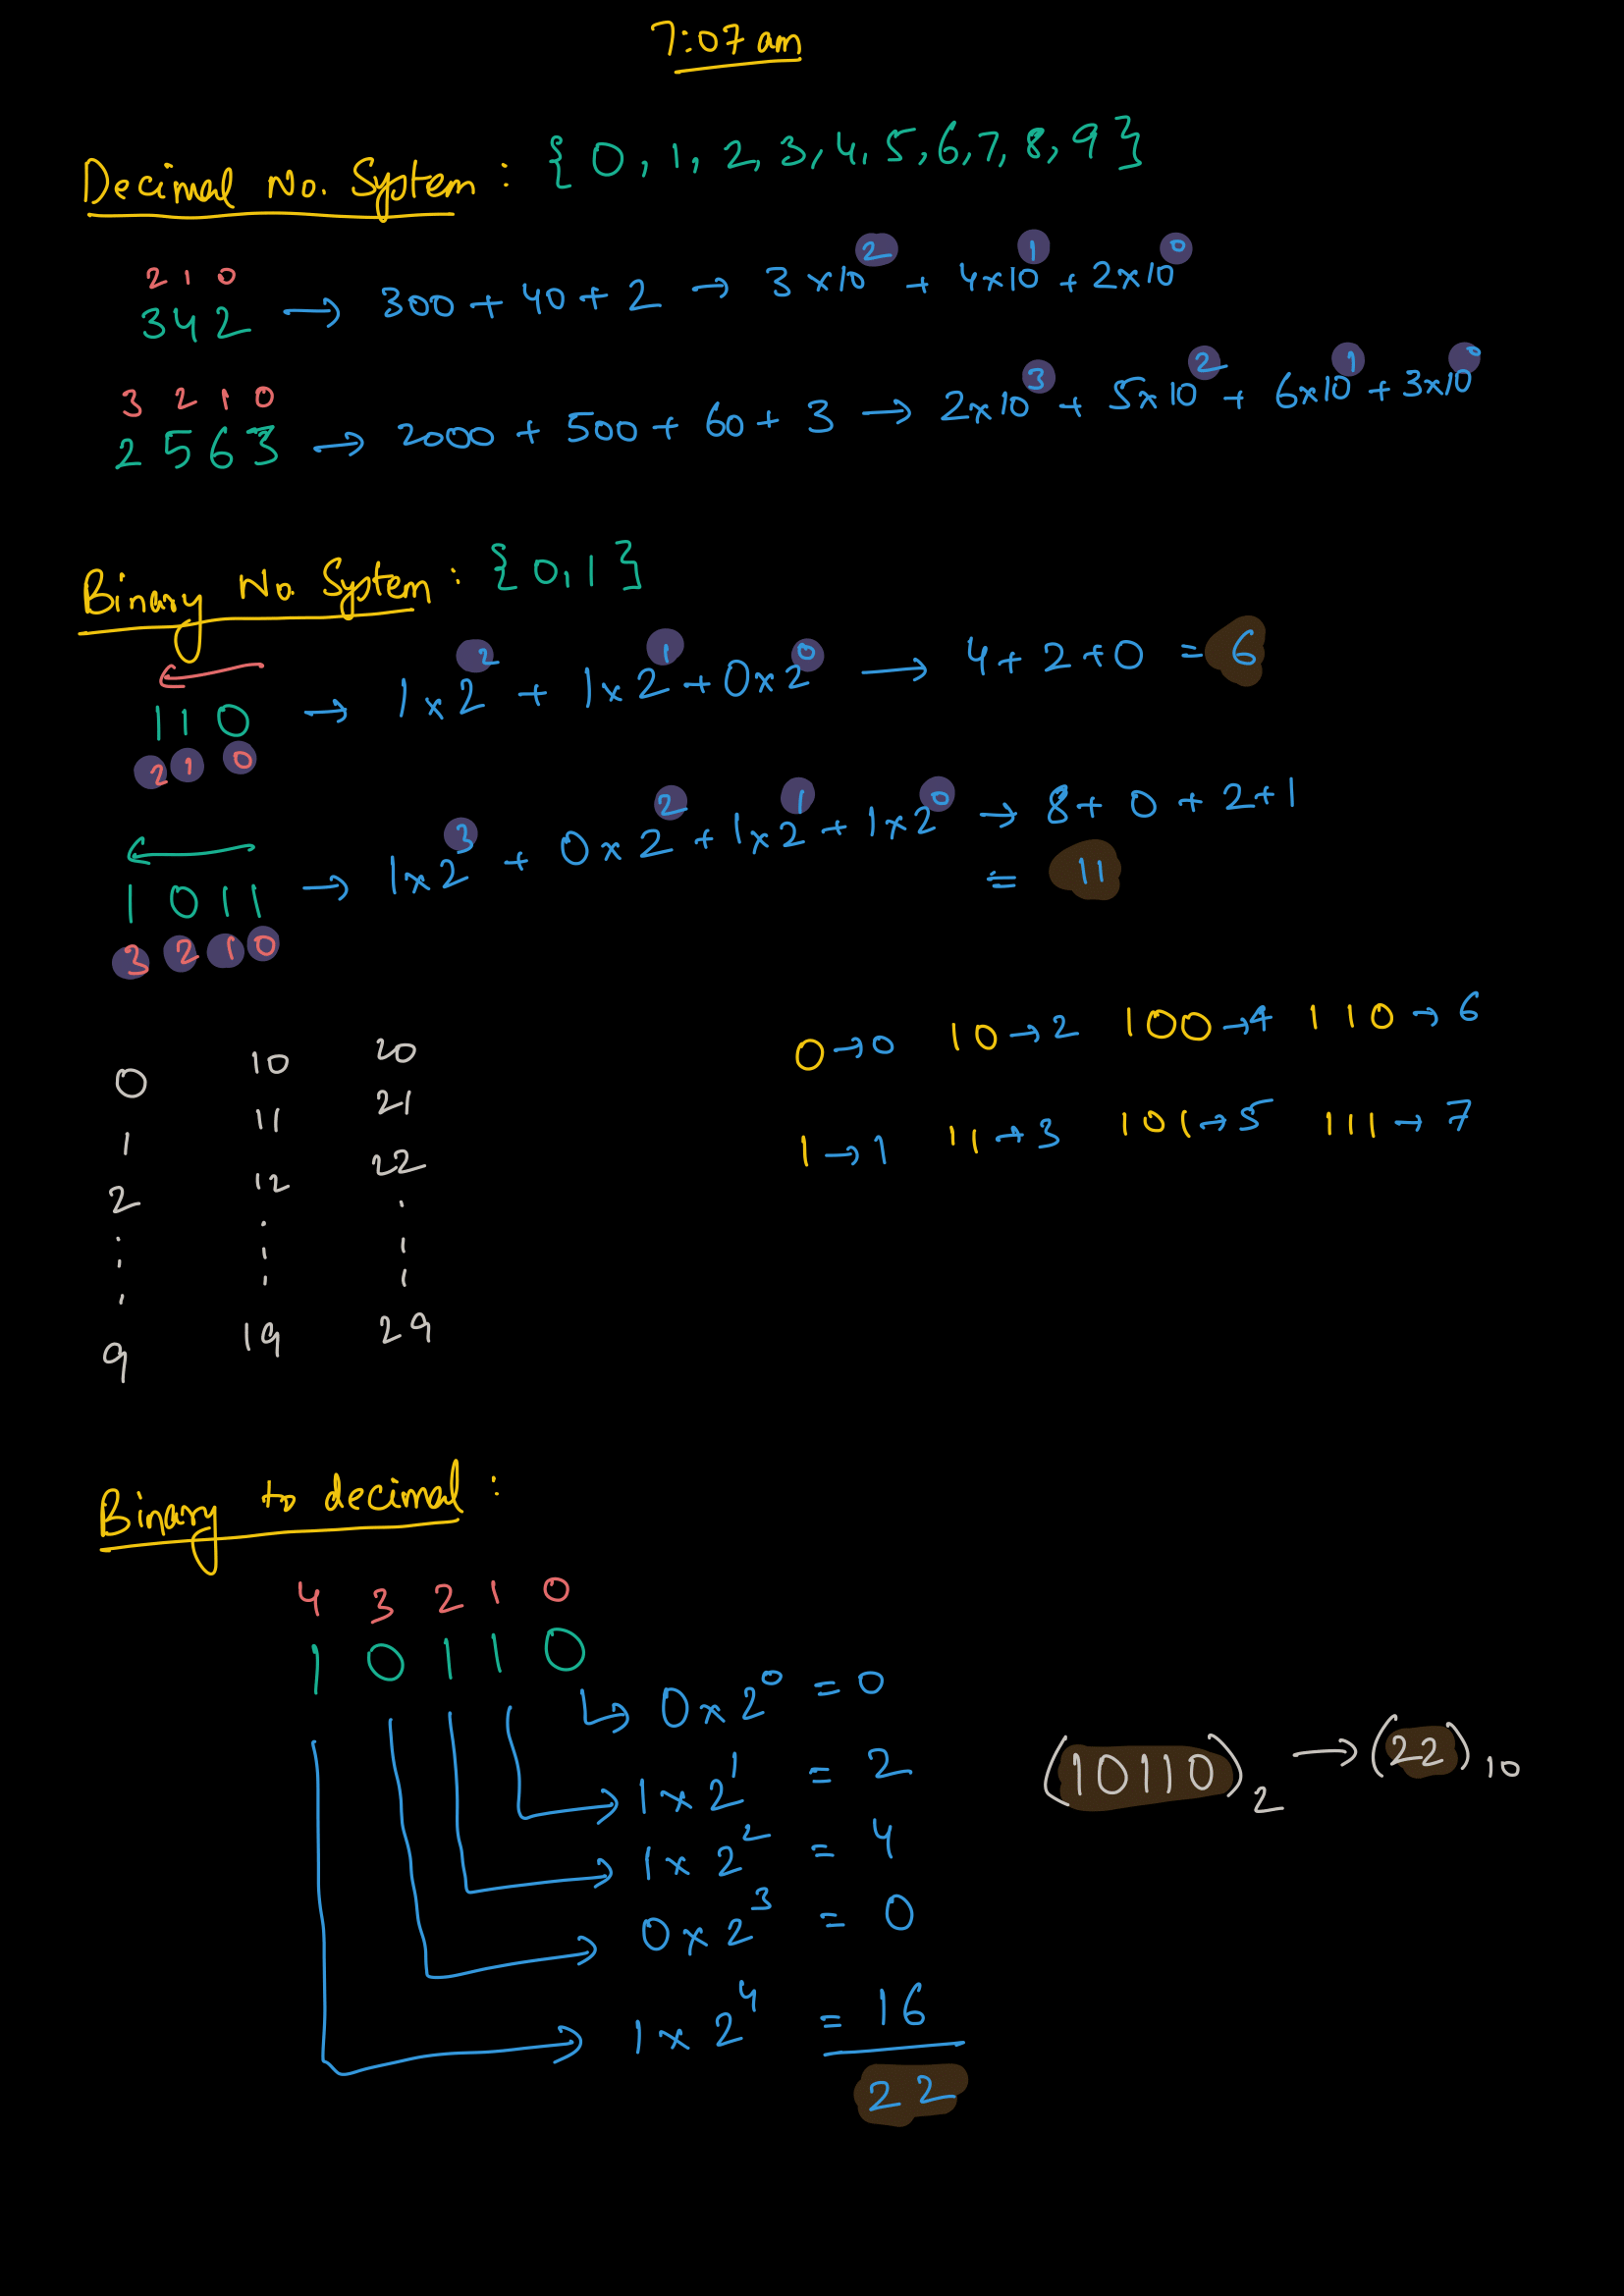 7:07 am
Decimal No. System : { 0, 1, 2, 3, 4, 5, 6, 7, 8, 9 }
2 1 0
342 → 300 + 40 + 2 → 3 × 10² + 4×10¹ + 2×10⁰
3 2 1 0
2563 → 2000 + 500 + 60 + 3 → 2×10³ + 5×10² + 6×10¹ + 3×10⁰
Binary No. System : { 0, 1 }
110 → 1×2² + 1×2¹ + 0×2⁰ → 4 + 2 + 0 = 6
2 1 0
1011 → 1×2³ + 0×2² + 1×2¹ + 1×2⁰ → 8 + 0 + 2 + 1
= 11
3 2 1 0
0 10 20
1 11 21
2 12 22
9 19 29
0 → 0 10 → 2 100 → 4 110 → 6
1 → 1 11 → 3 101 → 5 111 → 7
Binary to decimal :
4 3 2 1 0
1 0 1 1 0
0 × 2⁰ = 0
1 × 2¹ = 2
1 × 2² = 4
0 × 2³ = 0
1 × 2⁴ = 16
22
(10110)₂ → (22)₁₀